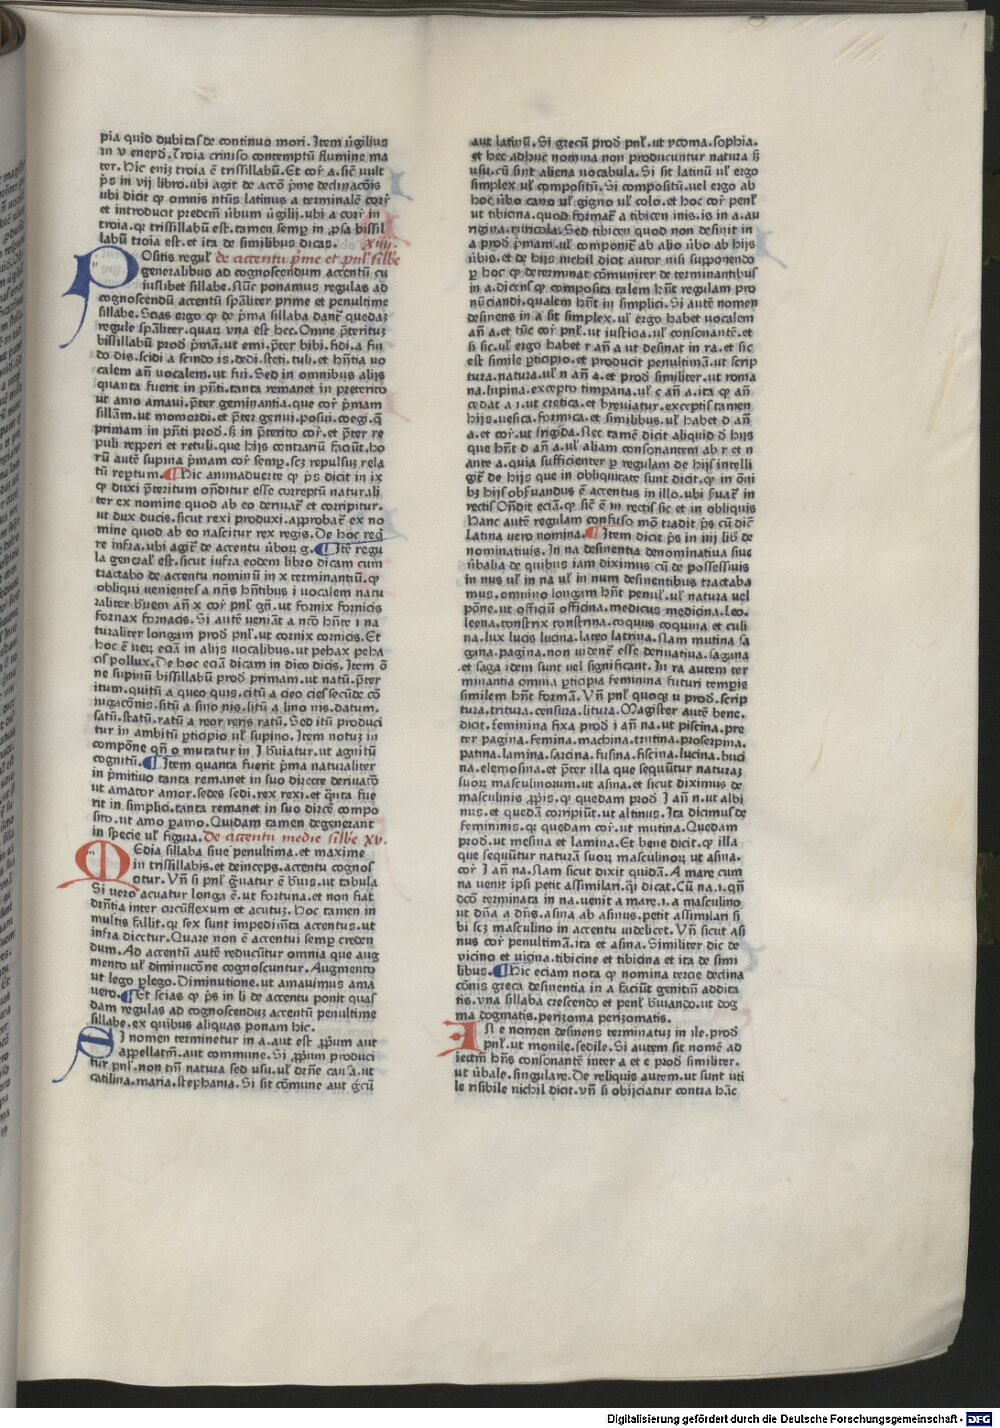 pia quid dubitas de continuo mori. Item v̓gilius
in v eneyd̓. Troia criniso contemptū flumine ma
ter. Hic eniꝫ troia ē trissillabū. Et cor̓ a. sic̄ vult
p̄s in vij libro. ubi agit de accō p̄me declinacōis
ubi dicit ꝙ omnis ntūs latinus a terminalē cor̓
et introducit predcm̄ ūbum ūgilij. ubi a cor̓ in
troia. qꝛ trissillabū est. tamen semꝑ in ꝓsa bissil
labū troia est. et ita de similibus dicas. XIIII.
POsitis regul̓ de accentu p̄me et pnl̓ sillbe
generalibus ad cognoscendum accentū cu
iuslibet sillabe. Nūc ponamus regulas ad
cognoscendū accentū spāliter prime et penultime
sillabe. Scias ergo ꝙ de p̄ma sillaba dant̄ quedaꝫ
regule spāliter. quaꝝ vna est hec. Omne p̄terituꝫ
bissillabū prod̓ p̄mā. ut emi. p̄ter bibi. fidi. a fin
do dis. scidi a scindo is. dedi. steti. tuli. et hn̄tia uo
calem añ uocalem. ut fui. Sed in omnibus alijs
quanta fuerit in pn̄ti. tanta remanet in preterito
ut amo amaui. p̄ter geminantia. que cor̓ p̄mam
sillam. ut momordi. et p̄ter genui. posui. coegi. q̄
primam in pn̄ti prod̓. sꝫ in p̄terito cor̓. et p̄ter re
puli repperi et retuli. que hijs contrariū faciūt. ho
rū autē supina p̄mam cor̓ semꝑ. scꝫ repulsuꝫ rela
tū reptum. ¶ Hic animaduerte ꝙ p̄s dicit in ix
ꝙ duxi p̄teritum on̄ditur esse correptū naturali
ter ex nomine quod ab eo deriuat̄ et corripitur.
ut dux ducis. sicut rexi produxi. approbat̄ ex no
mine quod ab eo nascitur rex regis. De hoc req̄
re infra. ubi agit̄ de accentu ūboꝝ g. ¶ Itē regu
la general̓ est. sicut infra eodem libro dicam cum
tractabo de accentu nominū in x terminantiū. ꝙ
obliqui uenientes a ntīs hn̄tibus i uocalem natu
raliter b̄uem añ x cor̓ pnl̓ gn̄. ut fornix fornicis
fornax fornacis. Si autē veniāt a ntō hn̄te i na
turaliter longam prod̓ pnl̓. ut cornix cornicis. Et
hoc ē ueꝝ eciā in alijs uocalibus. ut pehax peha
cis pollux. De hoc eciā dicam in dico dicis. Item ō
ne supinū bissillabū prod̓ primam. ut natū. p̄ter
itum. quitū a queo quis. citū a cieo cies secūde cō
iugacōnis. sitū a sino nis. litū a lino nis. datum.
satū. statū. ratū a reor reris ratū. Sed itū produci
tur in ambitū pticipio ul̓ supino. Item notuꝫ in
compōne qn̄ o mutatur in I b̄uiatur. ut agnitū
cognitū. ¶ Item quanta fuerit p̄ma naturaliter
in p̄mitiuo tanta remanet in suo directe deriuatō
ut amator amor. sedes sedi. rex rexi. et q̄nta fue
rit in simplici. tanta remanet in suo dircē compo
sito. ut amo ꝑamo. Quidam tamen degenerant
in specie ul̓ figura. De accentu medie sillbe XV.
MEdia sillaba siue penultima. et maxime
in trissillabis. et deinceps. accentu cognos
citur. Vn̄ si pnl̓ g̓uatur ē b̄uis. ut tabula
Si uero acuatur longa ē. ut fortuna. et non fiat
drn̄tia inter circūflexum et acutuꝫ. Hoc tamen in
multis fallit. qꝛ sex sunt impedimta accentus. ut
infra dicetur. Quare non ē accentui semꝑ creden
dum. Ad accentū autē reducūtur omnia que aug
mento ul̓ diminucōne cognoscuntur. Augmento
ut lego ꝑlego. Diminutione. ut amauimus ama
uero. ¶ Et scias ꝙ p̄s in li de accentu ponit quas
dam regulas ad cognoscenduꝫ accentū penultime
sillabe. ex quibus aliquas ponam hic.
SI nomen terminetur in a. aut est ꝓpium aut
appellatm̄. aut commune. Si ꝓpium produci
tur pnl̓. non tn̄ natura sed usu. ul̓ drn̄e cau̓a. ut
catilina. maria. stephania. Si sit cōmune aut g̓cū
aut latinū. Si grecū prod̓ pnl̓. ut ycoma. sophia.
et hec adhuc nomina non producuntur natura sꝫ
usu. cū sint aliena uocabula. Si sit latinū ul̓ ergo
simplex ul̓ compositū. Si compositū. uel ergo ab
hoc ūbo cano ul̓ gigno ul̓ colo. et hoc cor̓ penl̓
ut tibicina. quod format̄ a tibicen inis. is in a. au
rigina. ruricola. Sed tibicen quod non desinit in
a prod̓ p̄mam. ul̓ componit̄ ab alio ūbo ab hijs
ūbis. et de hijs nichil dicit autor nisi supponendo
ꝑ hoc ꝙ determinat cōmuniter de terminantibus
in a. dicens ꝙ composita talem hn̄t regulam pro
nūciandi. qualem hn̄t in simplici. Si autē nomen
desinens in a sit simplex. ul̓ ergo habet uocalem
añ a. et tūc cor̓ pnl̓. ut iusticia. ul̓ consonantē. et
si sic. ul̓ ergo habet r añ a ut desinat in ra. et sic
est simile pticipio. et producit penultimā. ut scrip
tura. natura. ul̓ n añ a. et prod̓ similiter. ut roma
na. lupina. excepto timpana. ul̓ c añ a. ita ꝙ añ
cedat a i. ut cretica. et breuiatur. exceptis tamen
hijs. uesica. formica. et similibus. ul̓ habet d añ
a. et cor̓. ut frigida. Nec tamē dicit aliquid d̓ hijs
que hn̄t d añ a. ul̓ aliam consonantem ab r et n
ante a. quia sufficienter ꝑ regulam de hijs intelli
git̄ de hijs que in obliquitate sunt dicit. ꝙ in ōni
bꝫ hijs obseruandus ē accentus in illo. ubi seruat̄ in
rectis On̄dit eciā. ꝙ sic ē in rectis sic et in obliquis
Hanc autē regulam confuso mō tradit p̄s cū dic̄
Latina uero nomina. ¶ Item dicit p̄s in iiij lib̓ de
nominatiuis. In na desinentia denominatiua siue
ūbalia de quibus iam diximus cū de possessiuis
in nus ul̓ in na ul̓ in num desinentibus tractaba
mus. omnino longam hn̄t penul̓. ul̓ natura vel
pōne. ut officiū officina. medicus medicina. leo.
leena. constrix constrina. coquus coquina et culi
na. lux lucis lucina. lateo latrina. Nam mutina sa
gina. pagina. non uident̄ esse deriuatiua. sagina
et saga idem sunt uel significant. In ra autem ter
minantia omnia pticipia feminina futuri tempis
similem hn̄t formā. Vn̄ pnl̓ quoqꝫ u prod̓. scrip
tura. tritura. censura. litura. Magister autē bene.
dicit. feminina fixa prod̓ i añ na. ut piscina. pre
ter pagina. femina. machina. trutina. proserpina.
patina. lamina. sarcina. fusina. fiscina. lucina. buci
na. elemosina. et p̄ter illa que sequūtur naturaꝫ
suoꝝ masculinorum. ut asina. et sicut diximus de
masculinis ꝓpis. ꝙ quedam prod̓ I añ n. ut albi
nus. et quedā corripiūt. ut altinus. Ita dicimus de
femininis. qꝛ quedam cor̓. ut mutina. Quedam
prod̓. ut mesina et lamina. Et bene dicit. ꝙ illa
que sequūtur naturā suoꝝ masculinoꝝ. ut asina.
cor̓ I añ na. Nam sicut dixit quidā. A mare cum
na venit ipsi petit assimilari. qi̓ dicat. Cū na. i. qn̄
dcō terminata in na. uenit a mare. i. a masculino
ut dn̄a a dn̄s. asina ab asinus. petit assimilari si
bi scꝫ masculino in accentu uidelicet. Vn̄ sicut asi
nus cor̓ penultimam. ita et asina. Similiter dic de
vicino et uicina. tibicine et tibicina et ita de simi
libus. ¶ Hic eciam nota ꝙ nomina tercie declina
cōnis greca desinentia in a faciūt genitm̄ addita
tis. vna sillaba crescendo et penl̓ b̄uiando. ut dog
ma dogmatis. perizoma perizomatis.
ISl e nomen desinens terminatuꝫ in ile. prod̓
pnl̓. ut monile. sedile. Si autem sit nomē ad
iectm̄ hn̄s consonantē inter a et e prod̓ similiter.
ut ūbale. singulare. De reliquis autem. ut sunt uti
le nsibile nichil dicit. vn̄ si obijciatur contra hāc
Digitalisierung gefördert durch die Deutsche Forschungsgemeinschaft - DFG